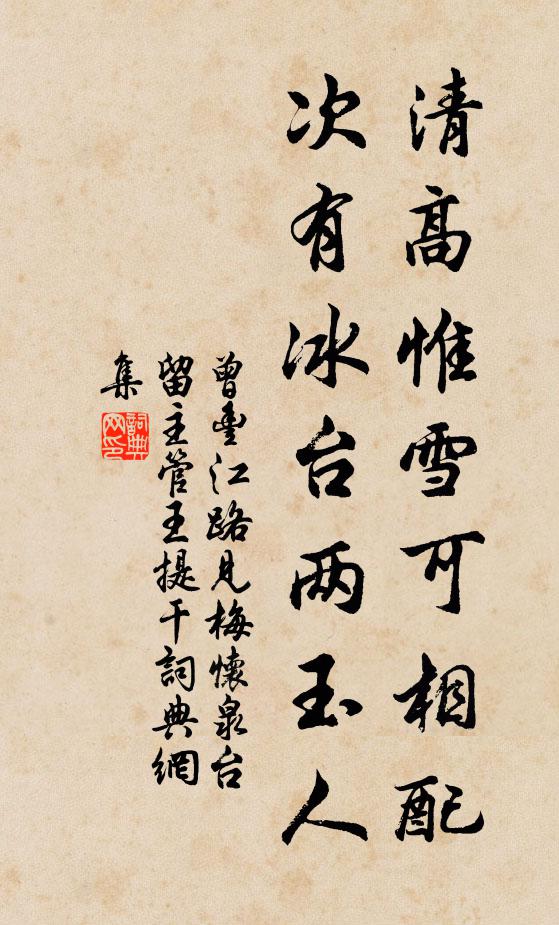 清高惟雪可相配
次有冰台两玉人
曾豐江路見梅懷泉台
留主管王提干詞典網
集
詞典
网印